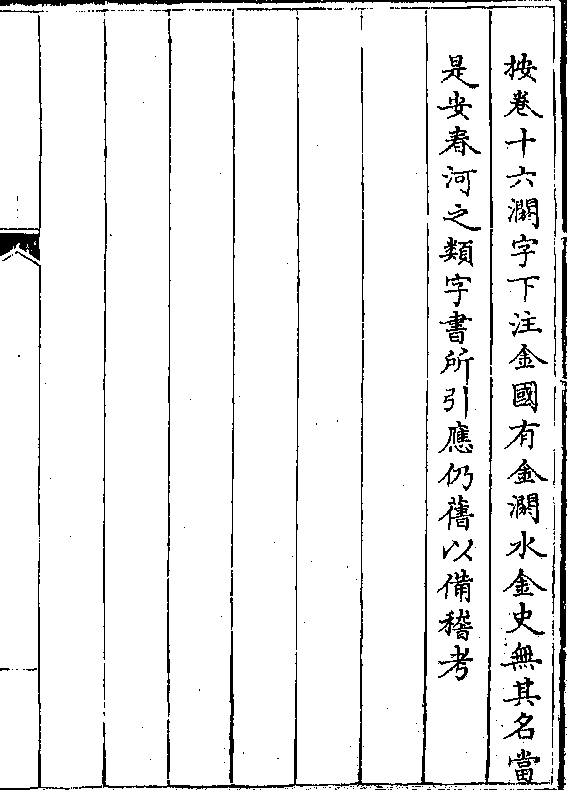 按卷十六瀾字下注金國有金瀾水金史無其名當
是安春河之類字書所引應仍舊以備稽考